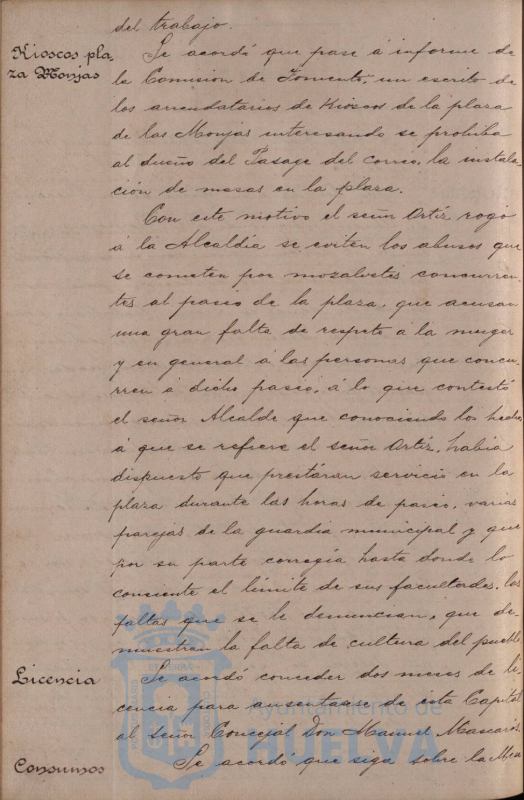 del trabajo.
Kioscos pla-
za Monjas
Se acordó que pase á informe de
la Comision de Fomento, un escrito de
los arrendatarios de Kioscos de la plaza
de las Monjas interesando se prohiba
al dueño del Pasage del correo, la instala-
ción de mesas en la plaza.
Con este motivo el señor Ortíz, rogó
á la Alcaldía se eviten los abusos que
se cometen por mozalvetes concurren-
tes al paseo de la plaza, que acusan
una gran falta de respeto á la muger
y en general á las personas que concu-
rren á dicho paseo, á lo que contestó
el señor Alcalde que conociendo los hechos
á que se refiere el señor Ortíz, habia
dispuesto que prestáran servicio en la
plaza durante las horas de paseo, varias
parejas de la guardia municipal y que
por su parte corregía hasta donde lo
consiente el límite de sus facultades, las
faltas que se le denuncian, que de-
muestran la falta de cultura del pueblo
Licencia
Se acordó conceder dos meses de li-
cencia para ausentarse de esta Capital
al señor Concejal Don Manuel Mascarós.
Consumos
Se acordó que siga sobre la Mesa
Ayuntamiento de
HUELVA